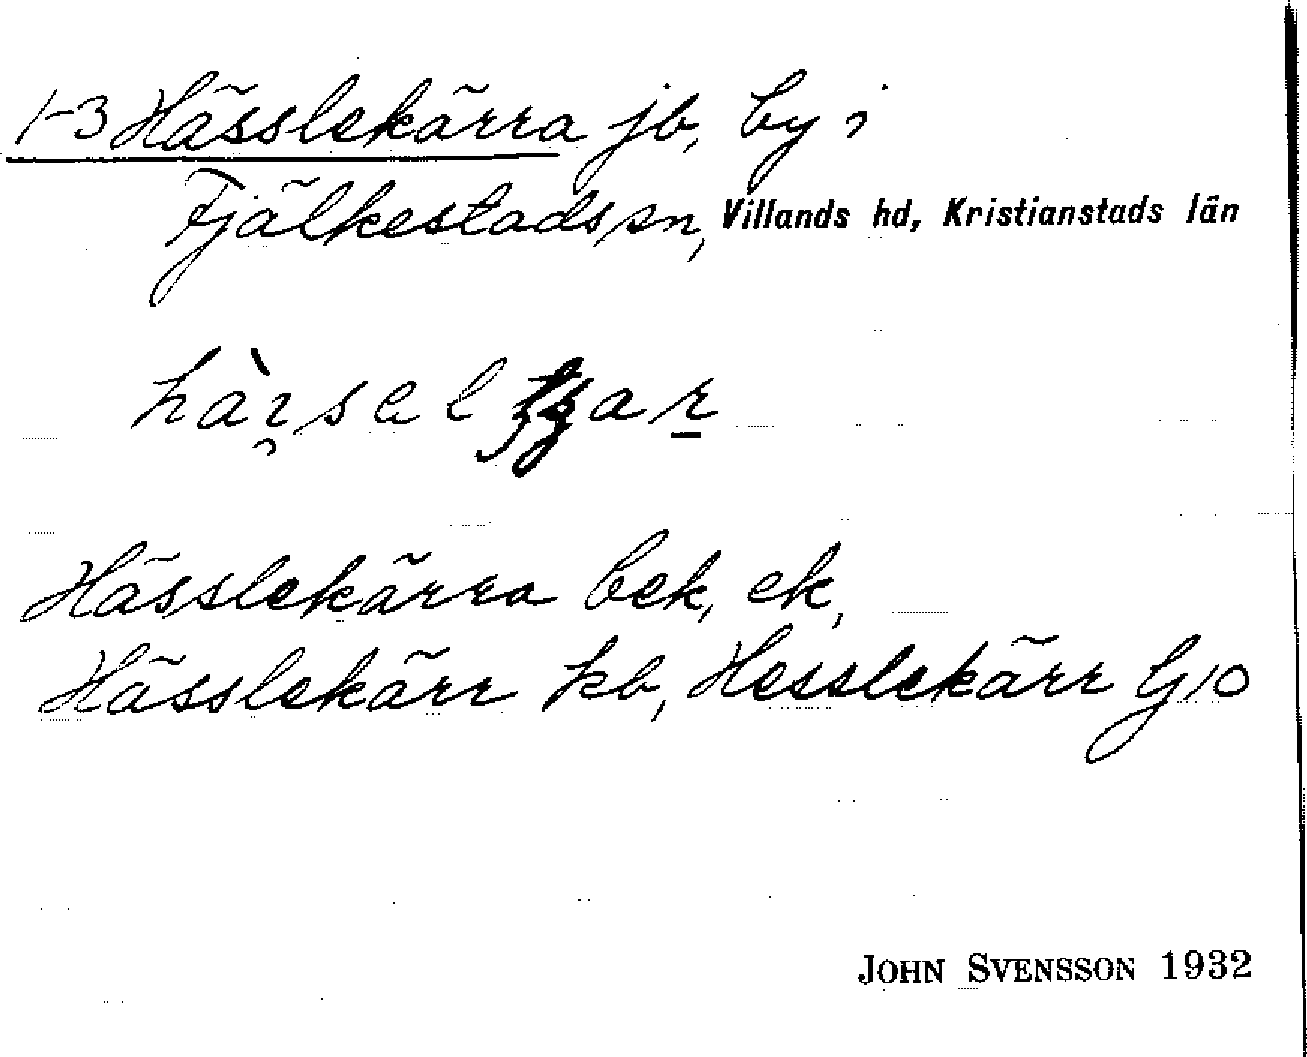 1-3 Hässlekärra jb, by i
Fjälkestads sn, Villands hd, Kristianstads län
Hässlekärra bek, ek,
Hässlekärr kb, Hesslekärr G10
JOHN SVENSSON 1932